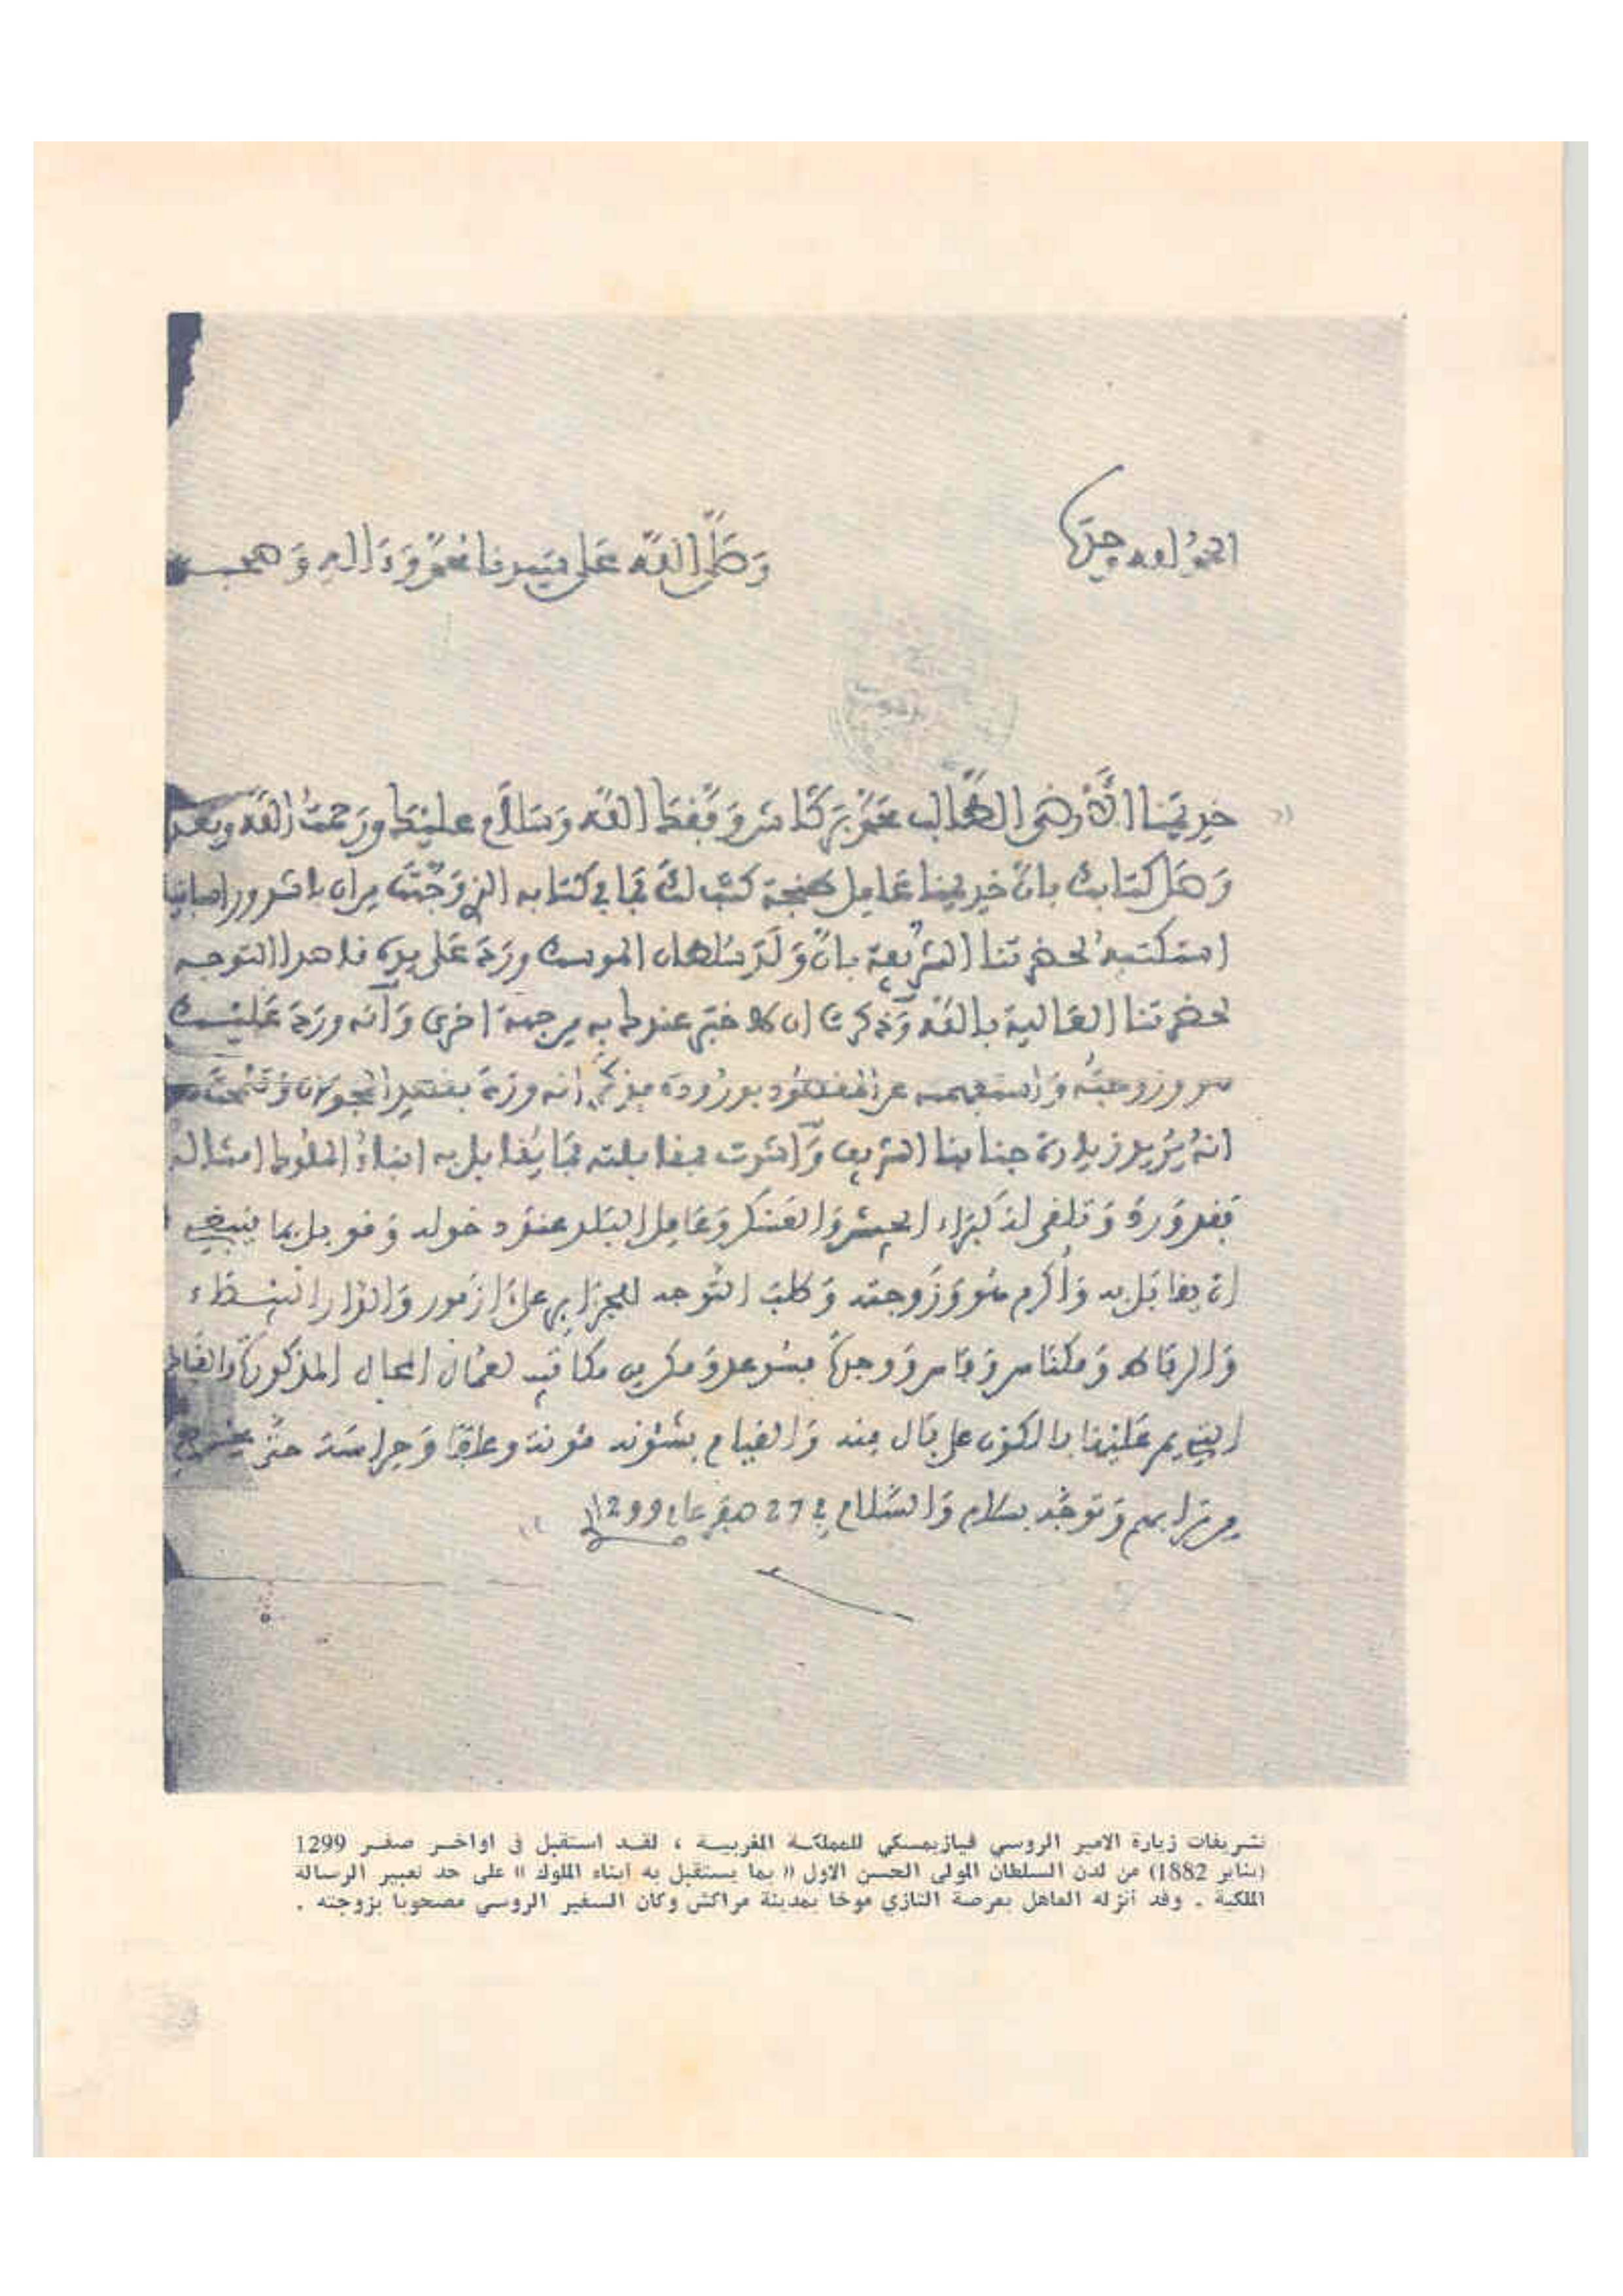 الحمد لله وحده
وصلى الله على سيدنا محمد وءاله وصحبه
خديمنا الأرضى الطالب محمد بركاش وفقك الله وسلام عليك ورحمت الله وبعد
وصل كتابك بان خديمنا عامل طنجة كتب لك بما في كتابه الذي وجهت من ان باشدور اصبانيا
استكتبه لحضرتنا الشريفة بان ولد سلطان الموسك ورد على يده قاصدا التوجه
لحضرتنا العالية بالله وذكرت ان لا خبر عندك به من جهة اخرى وانه ورد عليك
هو وزوجته واستفهمته عن المقصود بوروده فذكر انه ورد بقصد التجولان
انه يريد زيارة جنابنا الشريف واشرت بمقابلته بما يقابل به ابناء الملوك امثاله
فقد ورد وتلقى له كبراء الجيش والعسكر وعامل البلد عند دخوله وقوبل بما ينبغي
ان يقابل به وأكرم هو وزوجته وطلب التوجه للجزائر على ازمور والدار البيضاء
والرباط ومكناس وفاس ووجدة فسوعد ومكن من مكاتيب لعمال المحال المذكورة
التي يمر عليها بالكون على بال منه والقيام بشئونه مونة وعلفا وحراسة حتى يخرج
من ترابهم وتوجه بسلام والسلام في 27 صفر عام 1299
تشريفات زيارة الامير الروسي فيازيمسكي للمملكة المغربية ، لقد استقبل في اواخر صفر 1299
(يناير 1882) من لدن السلطان المولى الحسن الاول « بما يستقبل به ابناء الملوك » على حد تعبير الرسالة
الملكية . وقد أنزله العاهل بعرصة التازي موخا بمدينة مراكش وكان السفير الروسي مصحوبا بزوجته .